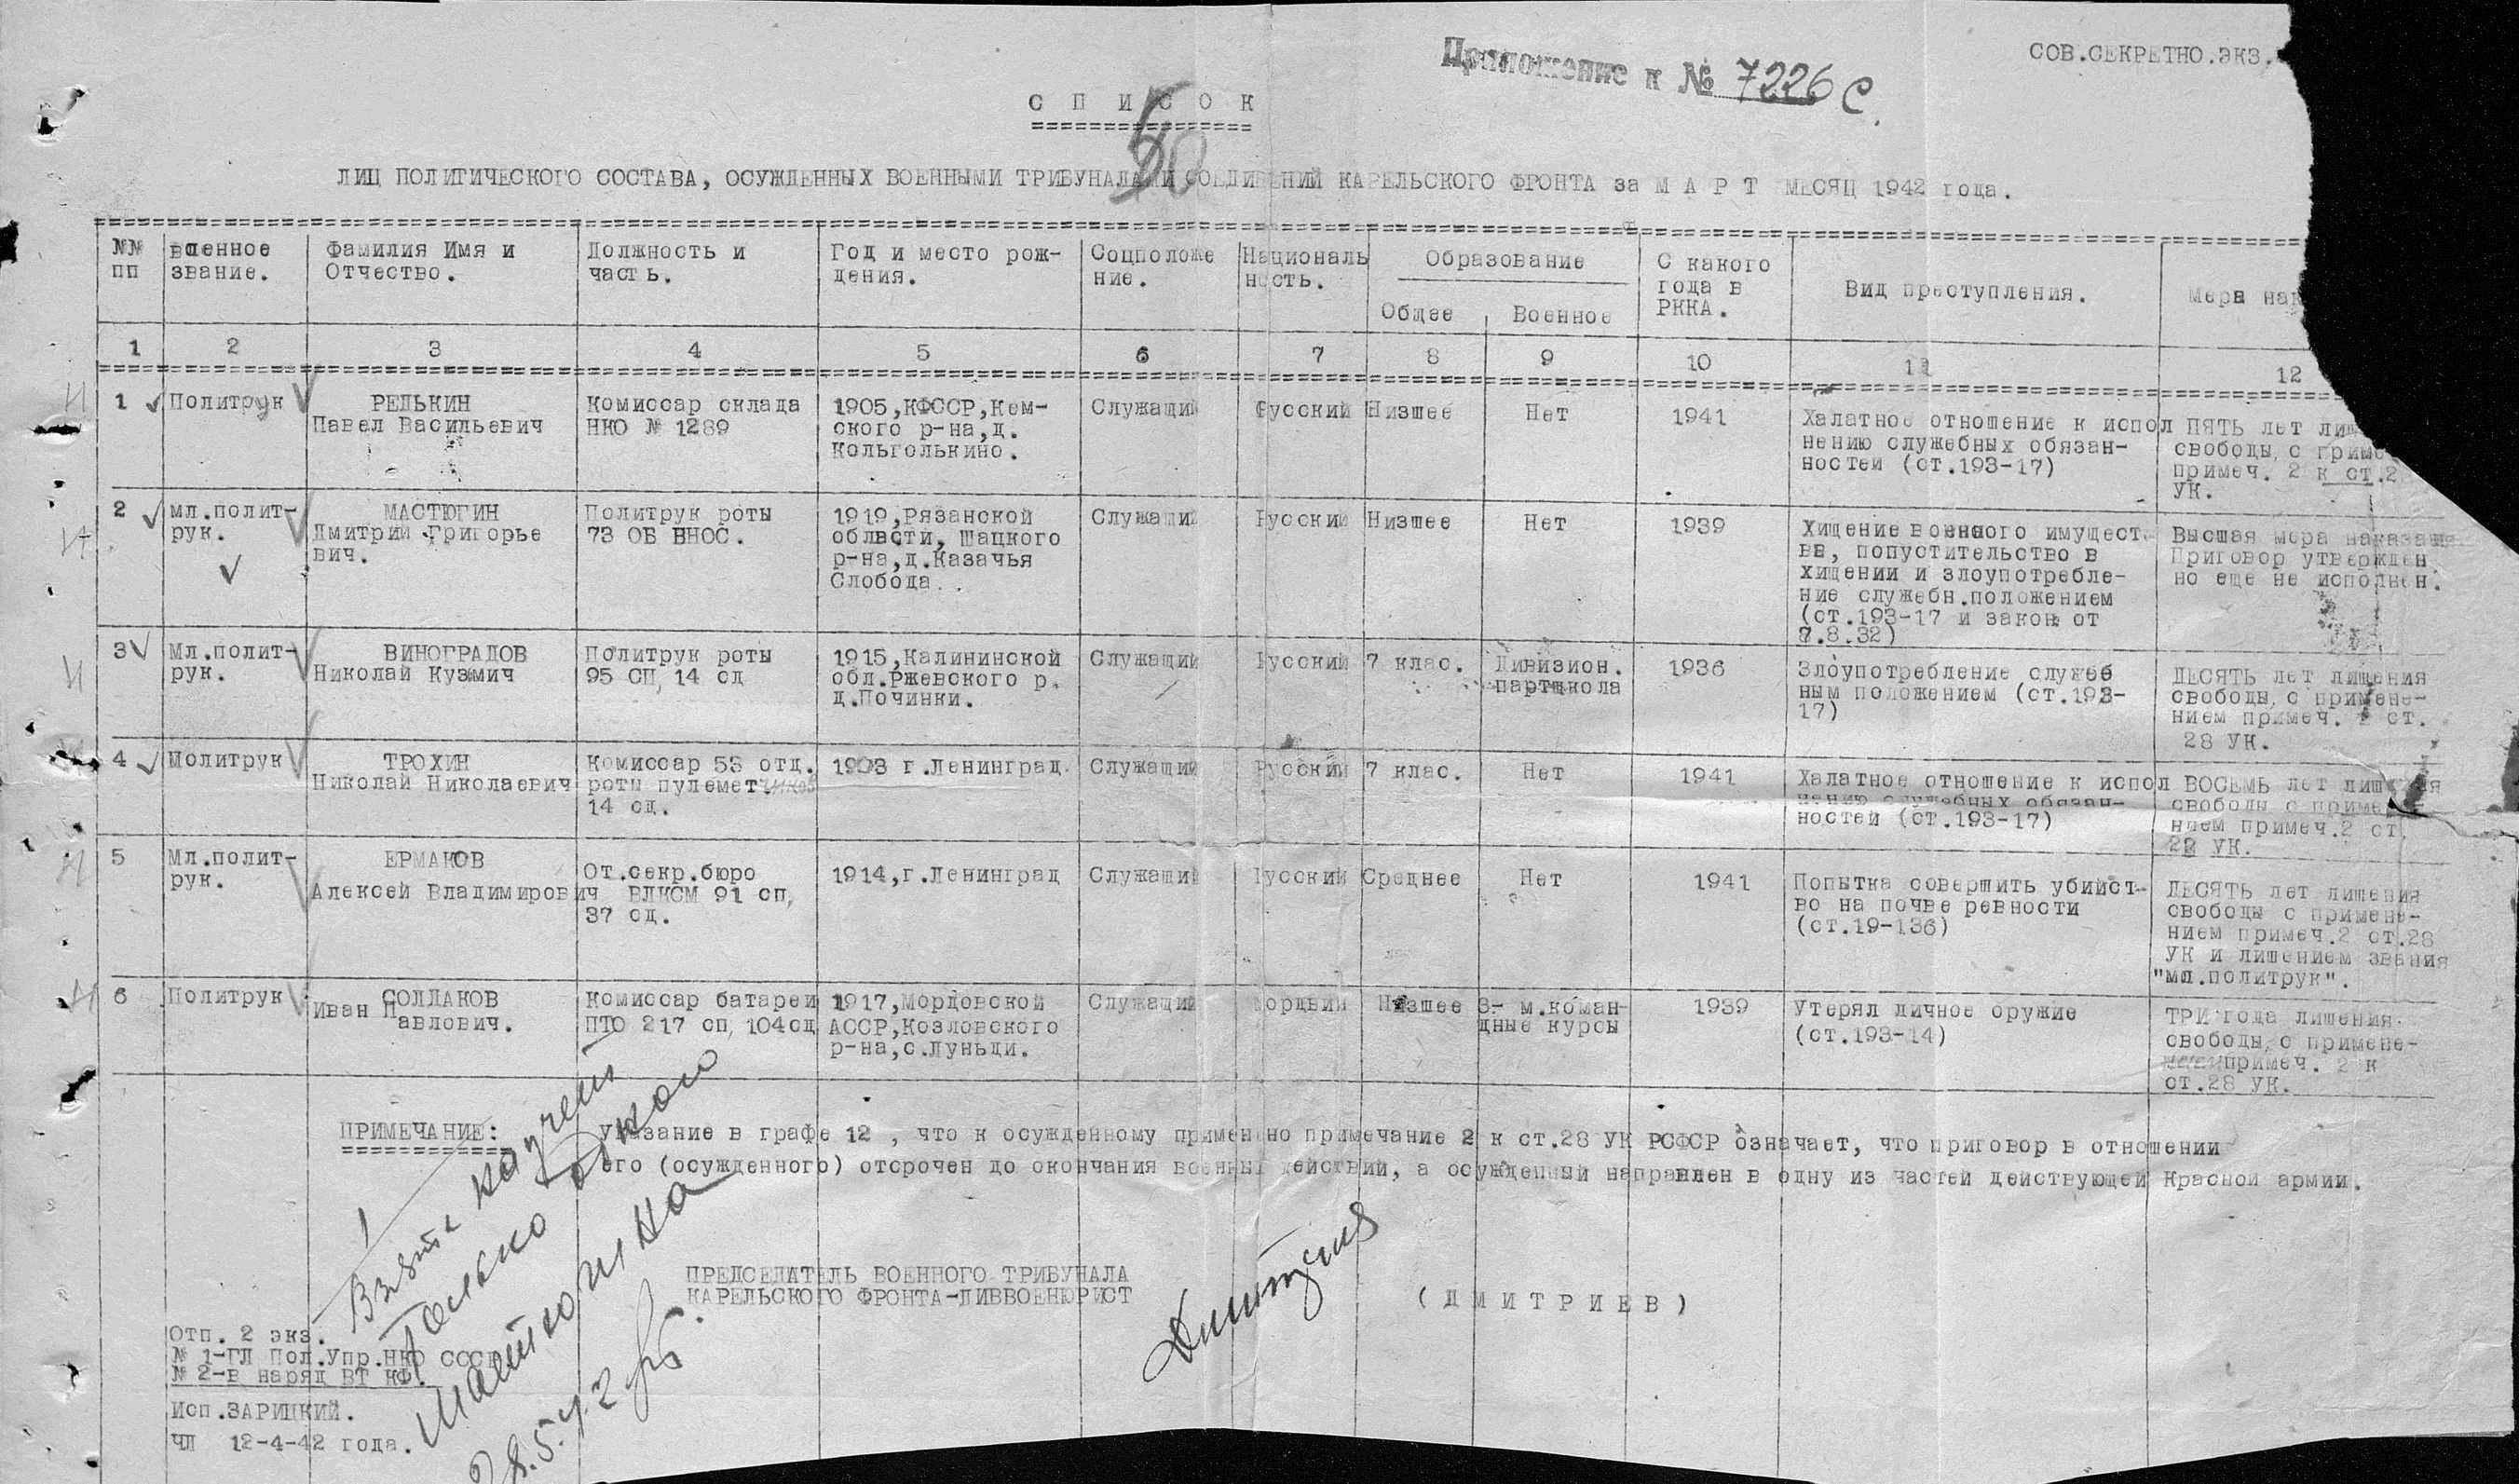 СОВ.СЕКРЕТНО.ЭКЗ.
Приложение к № 7226 с
С П И С О К
ЛИЦ ПОЛИТИЧЕСКОГО СОСТАВА, ОСУЖДЕННЫХ ВОЕННЫМИ ТРИБУНАЛАМИ СОЕДИНЕНИЙ КАРЕЛЬСКОГО ФРОНТА за М А Р Т МЕСЯЦ 1942 года.
№№
пп
военное
звание.
Фамилия Имя и
Отчество.
Должность и
часть.
Год и место рож-
дения.
Соцположе
ние.
Националь
ность.
Образование
Общее
Военное
С какого
года в
РККА.
Вид преступления.
Мера нак
1 2 3 4 5 6 7 8 9 10 11 12
1
Политрук
РЕДЬКИН
Павел Васильевич
Комиссар склада
НКО № 1289
1905,КФССР,Кем-
ского р-на,д.
Кольголькино.
Служащий
Русский
Низшее
Нет
1941
Халатное отношение к испол
нению служебных обязан-
ностей (ст.193-17)
ПЯТЬ лет лиш
свободы, с приме
примеч. 2 к ст.2
УК.
2
мл.полит-
рук.
МАСТЮГИН
Дмитрий Григорье
вич.
Политрук роты
73 ОБ ВНОС.
1919,Рязанской
области, Шацкого
р-на,д.Казачья
Слобода.
Служащий
Русский
Низшее
Нет
1939
Хищение военного имущест-
ва, попустительство в
хищении и злоупотребле-
ние служебн.положением
(ст.193-17 и закон от
7.8.32)
Высшая мера наказания
Приговор утвержден
но еще не исполнен.
3
Мл.полит-
рук.
ВИНОГРАДОВ
Николай Кузмич
Политрук роты
95 СП, 14 сд
1915,Калининской
обл.Ржевского р.
д.Починки.
Служащий
Русский
7 клас.
Дивизион.
партшкола
1936
Злоупотребление служеб
ным положением (ст.193-
17)
ДЕСЯТЬ лет лишения
свободы, с примене-
нием примеч. 2 ст.
28 УК.
4
Политрук
ТРОХИН
Николай Николаевич
Комиссар 53 отд.
роты пулемет.чиков
14 сд.
1903 г.Ленинград.
Служащий
Русский
7 клас.
Нет
1941
Халатное отношение к испол
нению служебных обязан-
ностей (ст.193-17)
ВОСЕМЬ лет лишения
свободы с приме
нием примеч.2 ст.
28 УК.
5
Мл.полит-
рук.
ЕРМАКОВ
Алексей Владимирович
От.секр.бюро
ВЛКСМ 91 сп,
37 сд.
1914,г.Ленинград
Служащий
Русский
Среднее
Нет
1941
Попытка совершить убийст-
во на почве ревности
(ст.19-136)
ДЕСЯТЬ лет лишения
свободы с примене-
нием примеч.2 ст.28
УК и лишением звания
"мл.политрук".
6
Политрук
СОЛДАКОВ
Иван Павлович.
Комиссар батареи
ПТО 217 сп, 104сд
1917,Мордовской
АССР,Козловского
р-на,с.Луньди.
Служащий
Мордвин
Низшее
3- м.коман-
дные курсы
1939
Утерял личное оружие
(ст.193-14)
ТРИ года лишения
свободы, с примене-
нием примеч. 2 к
ст.28 УК.
ПРИМЕЧАНИЕ: Указание в графе 12 , что к осужденному применено примечание 2 к ст.28 УК РСФСР означает, что приговор в отношении
его (осужденного) отсрочен до окончания военных действий, а осужденный направлен в одну из частей действующей Красной армии.
Взять на учет
только
Мастюгина
28.5.42
ПРЕДСЕДАТЕЛЬ ВОЕННОГО ТРИБУНАЛА
КАРЕЛЬСКОГО ФРОНТА-ДИВВОЕНЮРИСТ
( Д М И Т Р И Е В )
Отп. 2 экз.
№ 1-ГЛ Пол.Упр.НКО СССР
№ 2-в наряд ВТ КФ.
Исп.ЗАРИЦКИЙ.
ЧЛ 12-4-42 года.